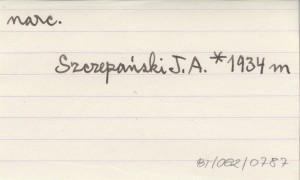 narc.
Szczepański J. A. *1934 m
BT/062/0787